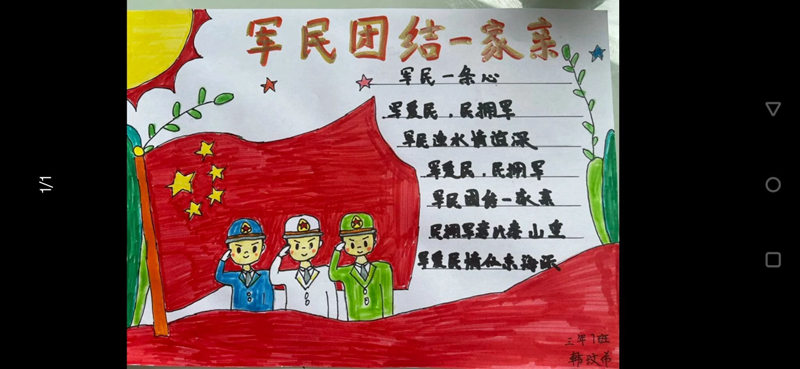 军民团结一家亲
军民一条心
军爱民,民拥军
军民渔水情谊深
军爱民,民拥军
军民团结一家亲
民拥军意比泰山重
军爱民情似东海深
三年1班
韩汶希
1/1